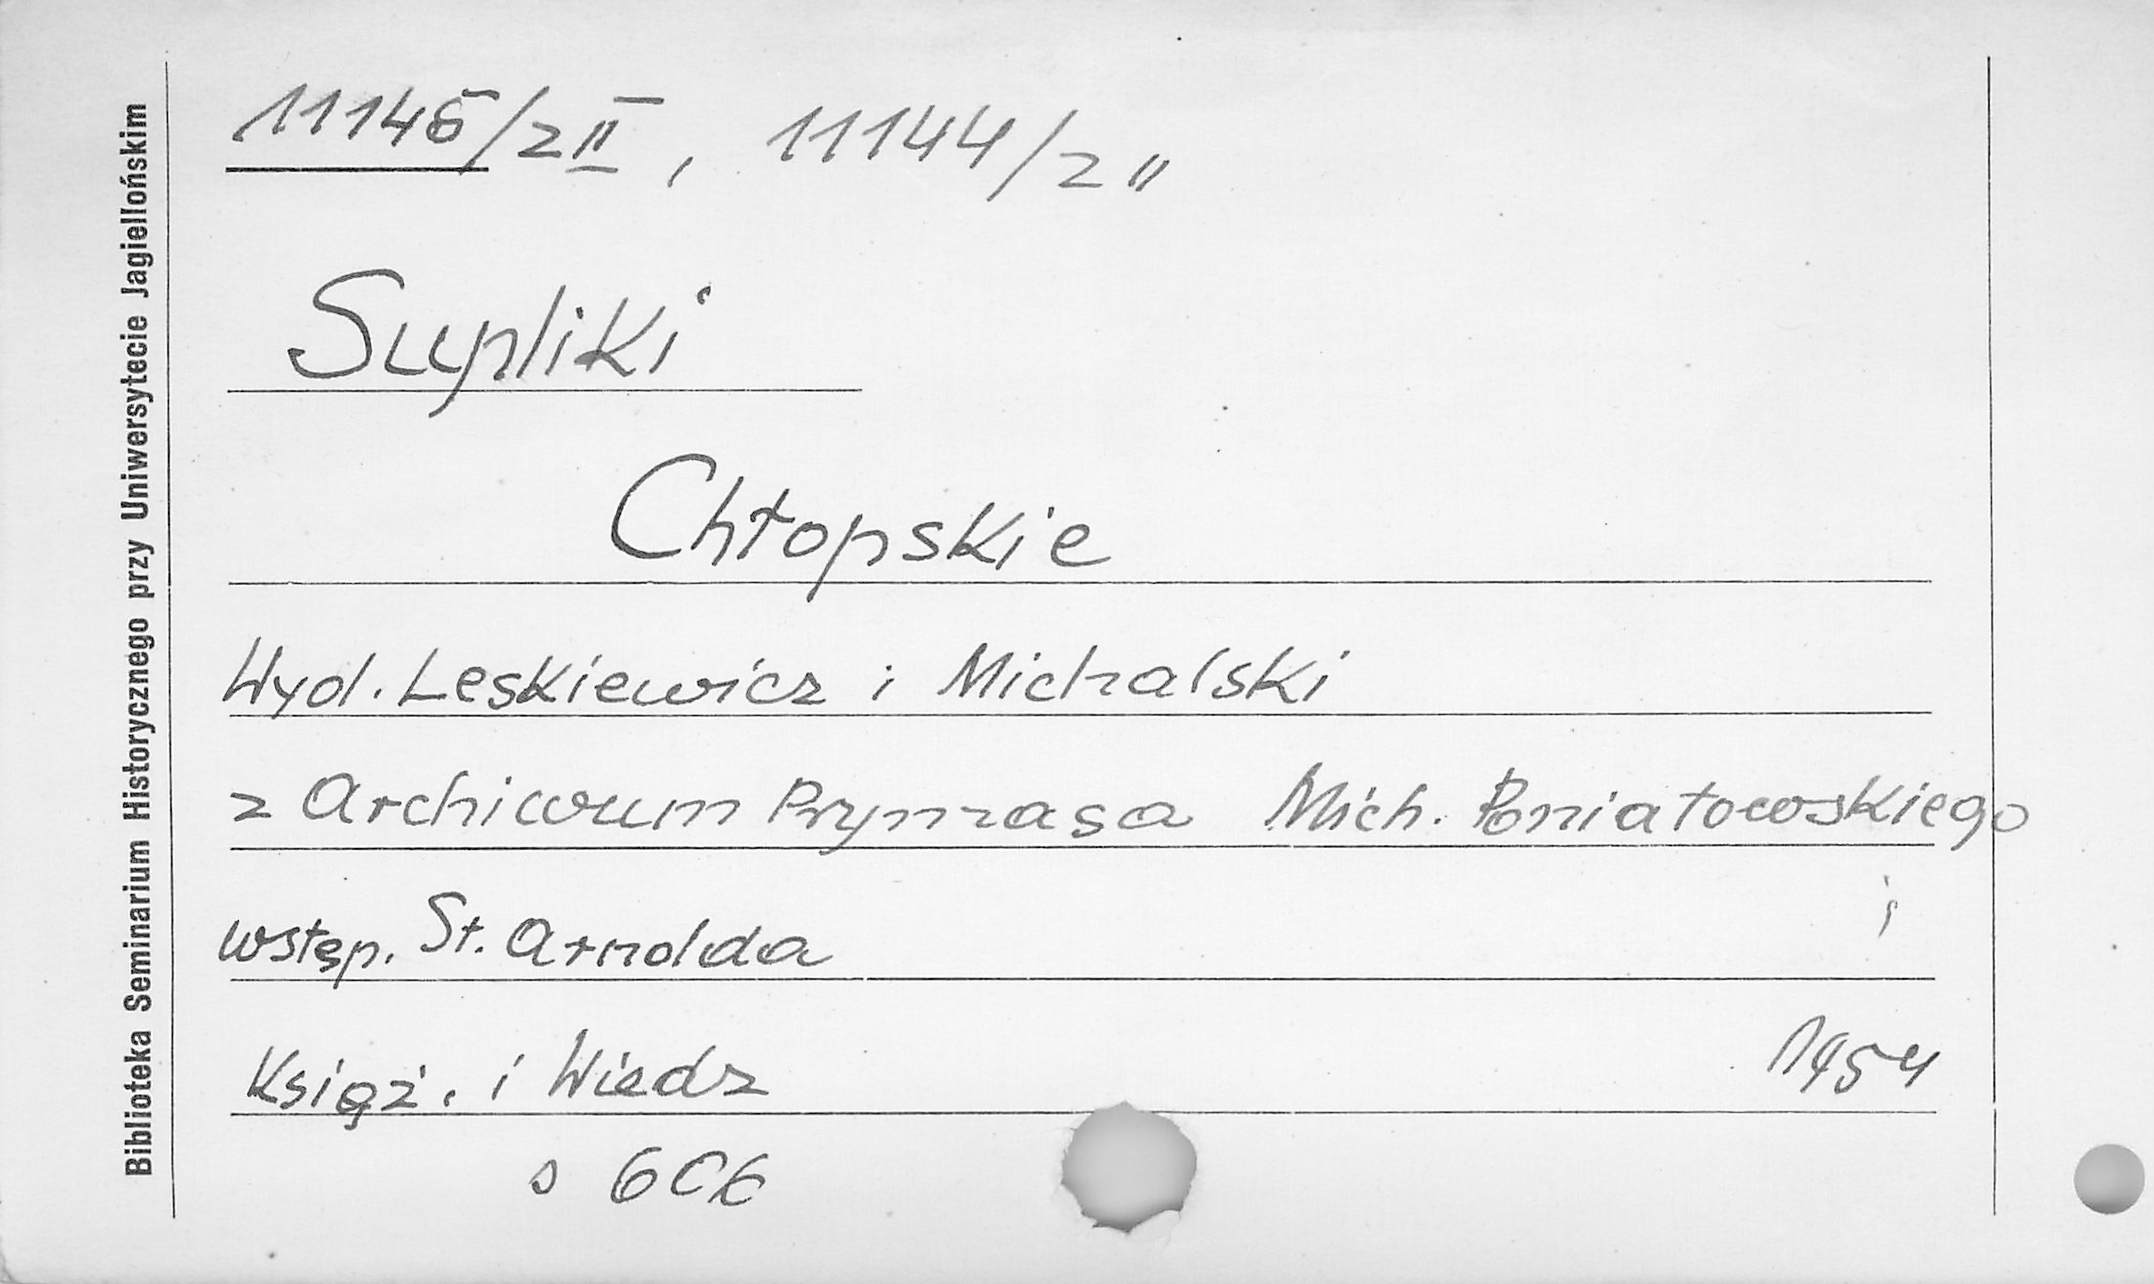 Biblioteka Seminarium Historycznego przy Uniwersytecie Jagiellońskim
11145/2 II, 11144/2 II
Supliki
Chłopskie
Wyd. Leskiewicz i Michalski
z Archiwum Prymasa Mich. Poniatowskiego
wstęp. St. Arnolda i
Książ. i Wiedz 1954
s 606